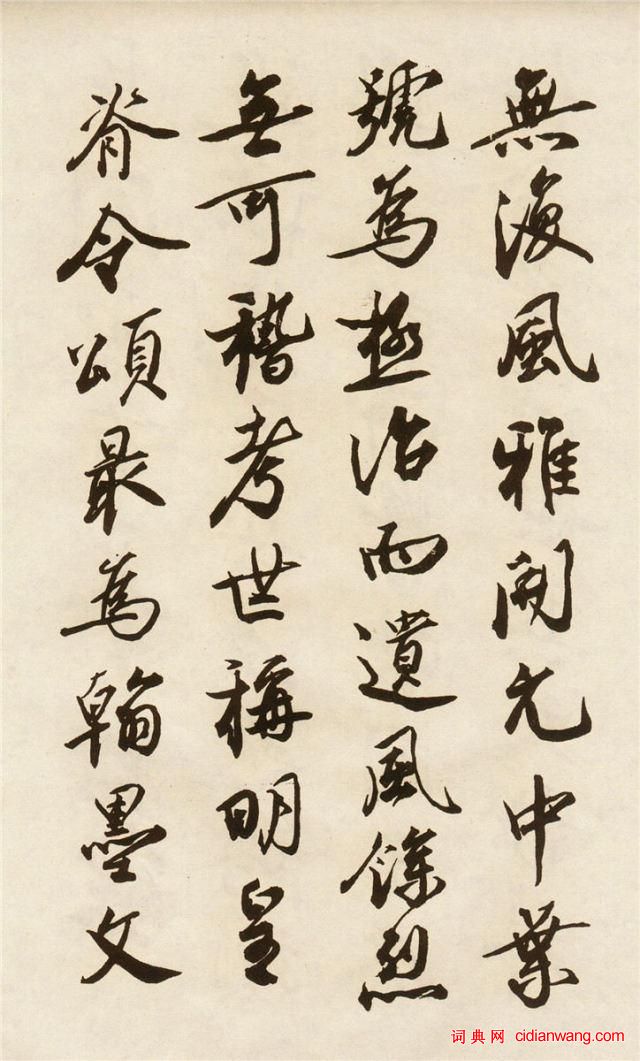 無復風雅開元中葉
號為極治而遺風餘烈
無可稽考世稱明皇
脊令頌最為翰墨文
词典网 cidianwang.com